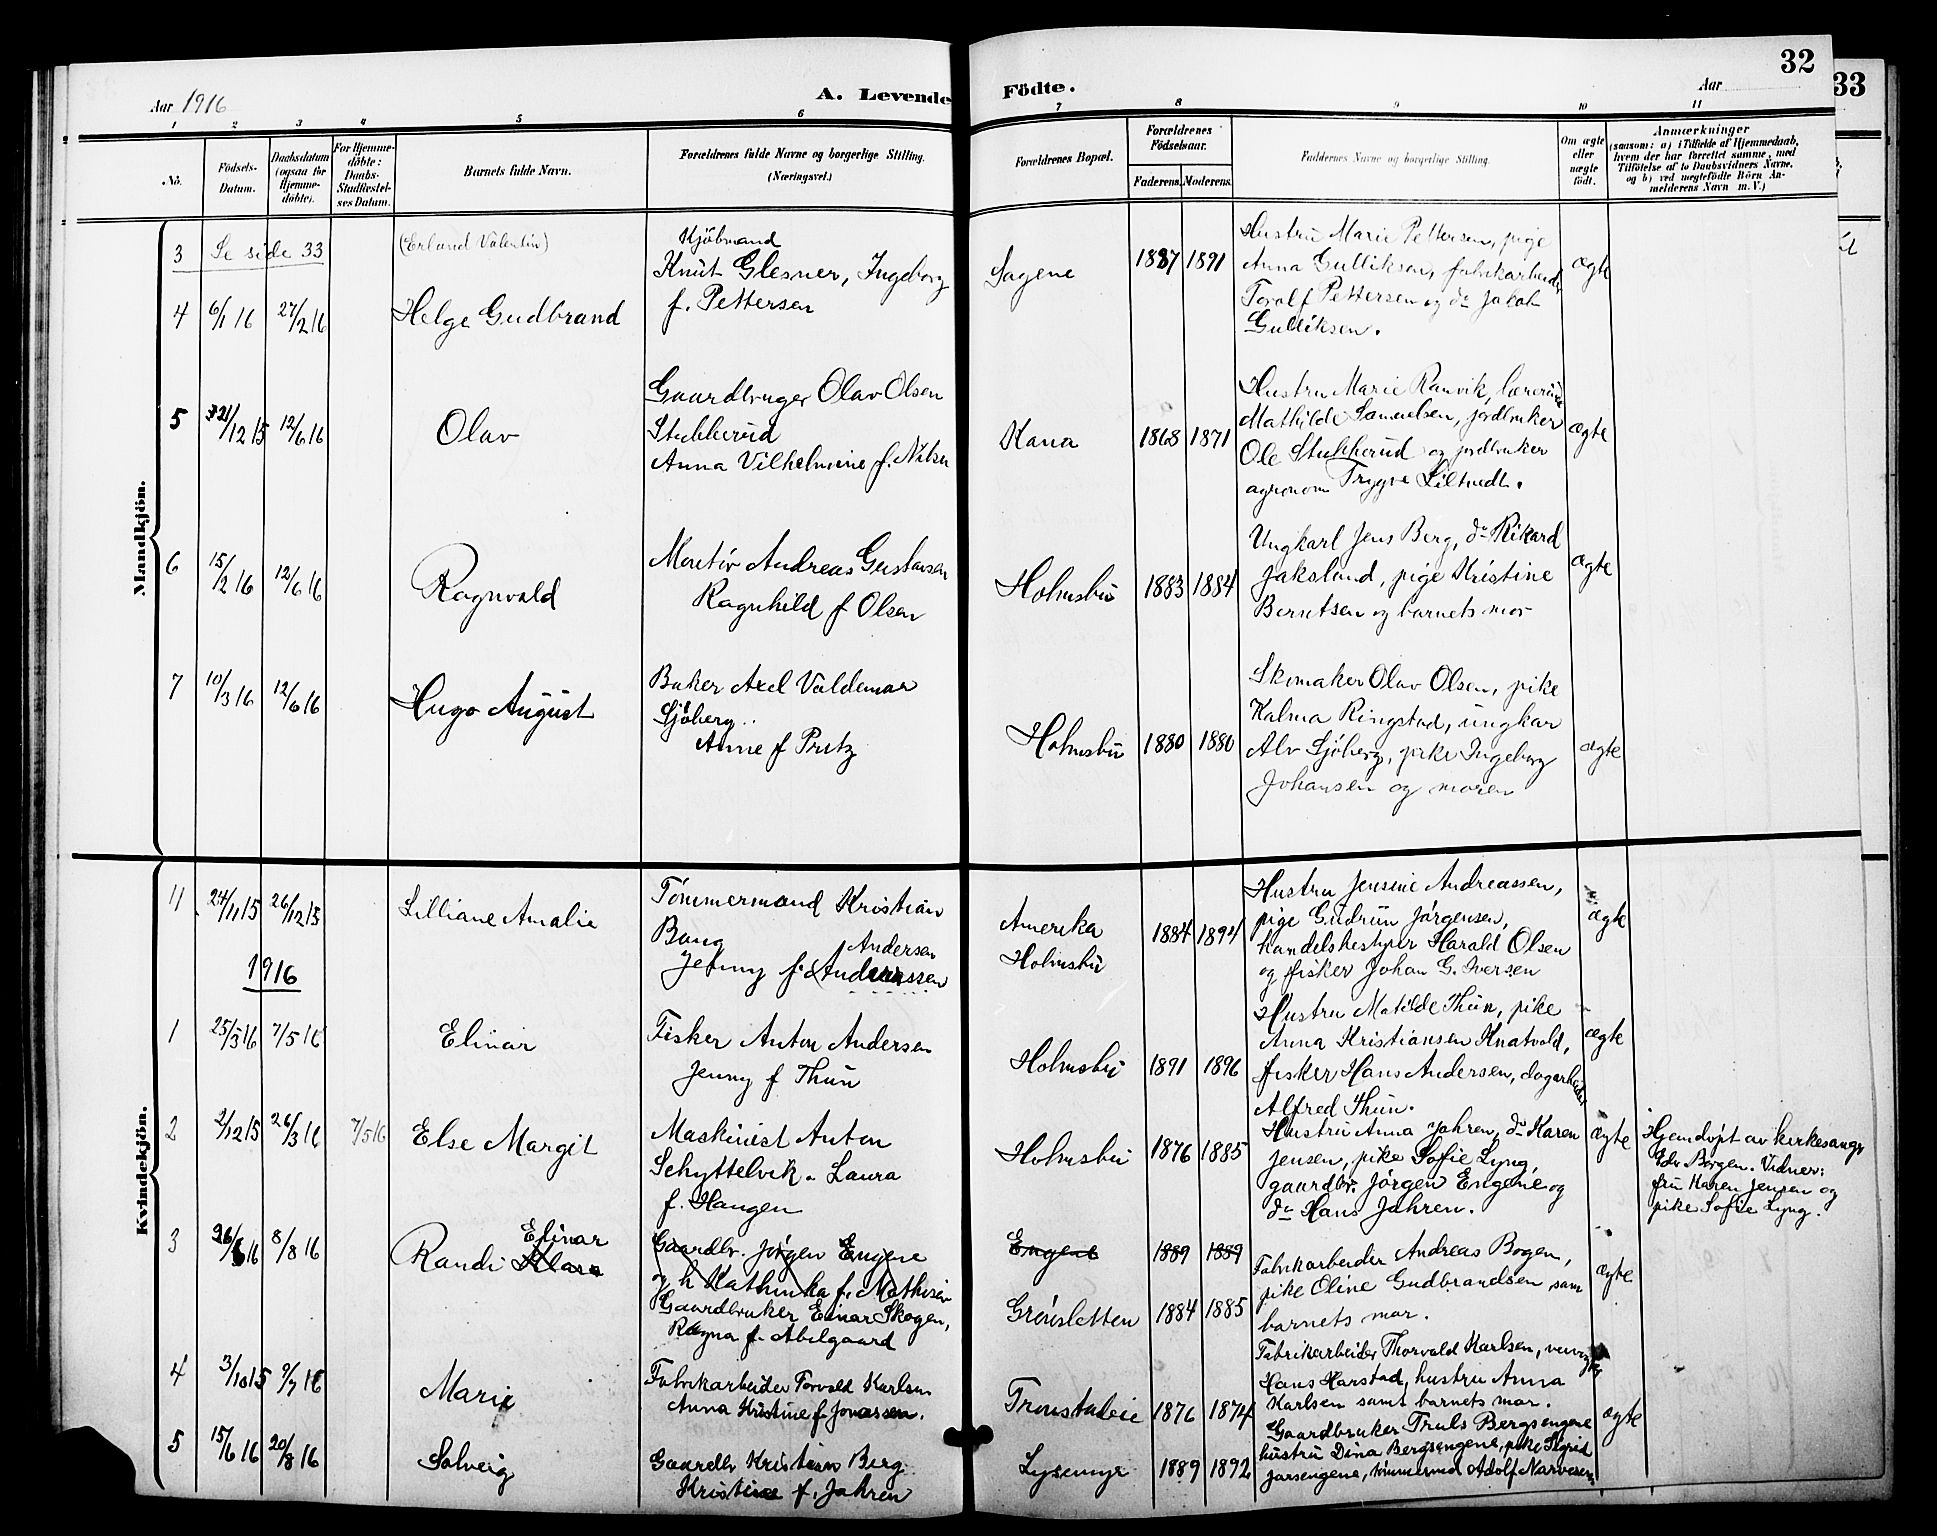 32
33
Aar 1916
A. Levende Födte.
Aar
1 2 3 4 5 6 7 8 9 10 11
No.
Födsels-Datum.
Daabsdatum (ogsaa for Hjemme-döbte).
For Hjemme-döbte: Daabs-Stadfæstel-ses Datum.
Barnets fulde Navn.
Forældrenes fulde Navne og borgerlige Stilling.
(Næringsvei.)
Forældrenes Bopæl.
Forældrenes Födselsaar.
Faderens. Moderens.
Faddernes Navne og borgerlige Stilling.
Om ægte eller uægte födt.
Anmærkninger
(saasom: a) i Tilfælde af Hjemmedaab,
hvem der har forrettet samme, med
Tilföielse af to Daabsvidners Navne,
og b) ved uægtefödte Börn An-
melderens Navn m. V.)
Mandkjön.
3 Se side 33 (Erland Valentin)
4 6/1 16 27/2 16 Helge Gudbrand
Kjöbmand
Knut Glesner, Ingeborg
f. Pettersen
Sagene 1887 1891
Hustru Marie Pettersen, pige
Anna Gulliksen, fabrikarbeider
Toralf Pettersen og do Jakob
Gulliksen.
ægte
5 21/12 15 12/6 16 Olav
Gaardbruger Olav Olsen
Stubberud
Anna Vilhelmine f. Nilsen
Kana 1868 1871
Hustru Marie Ramvik, lærerinde
Mathilde Samuelsen, jordbruker
Ole Stubberud og jordbruker
agronom Trygve Siltvedt.
ægte
6 15/2 16 12/6 16 Ragnvald
Montör Andreas Gustavsen
Ragnhild f Olsen
Holmsbu 1883 1884
Ungkarl Jens Berg, do Rikard
Jakslund, pige Kristine
Berntsen og barnets mor
ægte
7 10/3 16 12/6 16 Hugo August
Baker Axel Valdemar
Sjöberg
Anne f Pritz
Holmsbu 1880 1880
Skomaker Olav Olsen, pike
Kalma Ringstad, ungkar
Alv Sjöberg, pike Ingeborg
Johansen og moren
ægte
Kvindekjön.
11 24/11 15 26/12 15 Lilliane Amalie
Tömmermand Kristian
Bang
Jenny f. Andreassen
Andersen
Amerika
Holmsbu
1884 1894
Hustru Jensine Andreassen,
pige Gudrun Jörgensen,
handelsbestyrer Harald Olsen
og fisker Johan G. Iversen
ægte
1916
1 25/3 16 7/5 16 Elinar
Fisker Anton Andersen
Jenny f Thun
Holmsbu 1891 1896
Hustru Matilde Thun, pike
Anna Kristiansen Knatvold,
fisker Hans Andersen, dagarbeider
Alfred Thun.
ægte
2 2/12 15 26/3 16 7/5 16 Else Margit
Maskinist Anton
Schyttelvik. Laura
f. Haugen
Holmsbu 1876 1885
Hustru Anna Jahren, do Karen
Jensen, pike Sofie Lyng,
gaardbr. Jörgen Engene og
do Hans Jahren.
ægte
Hjemdöpt av kirkesanger
Edv Borgen. Vidner:
fru Karen Jensen og
pike Sofie Lyng.
3 26/6 16 8/8 16 Randi Klara
Elinar
Gaardbr. Jörgen Engene
og h Kathinka f. Mathisen
Gaardbruker Einar Skogen,
Ragna f. Abelgaard
Engene 1889 1889
Grönsletten 1884 1885
Fabrikarbeider Andreas Bogen,
pike Oline Gudbrandsen samt
barnets mor.
ægte
4 3/10 15 9/7 16 Marie
Fabrikarbeider Torvald Karlsen
Anna Kristine f. Jonassen.
Tronstadeie 1876 1874
Fabrikarbeider Thorvald Karlsen,
Hans Harstad, hustru Anna
Karlsen samt barnets mor.
ægte
5 15/6 16 20/8 16 Solveig
Gaardbr Kristian Berg
Kristine f. Jahren
Lysemyr 1889 1892
Gaardbruker Truls Bergsengene
hustru Dina Bergsengene, pike Sigrid
Jarsengene, tömmermand Adolf Narvesen